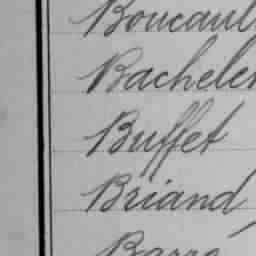 Boucaul
Bacheler
Buffet
Briand,
Barre